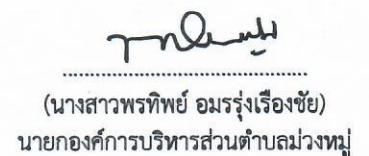 (นางสาวพรทิพย์ อมรรุ่งเรืองชัย)
นายกองค์การบริหารส่วนตำบลม่วงหมู่